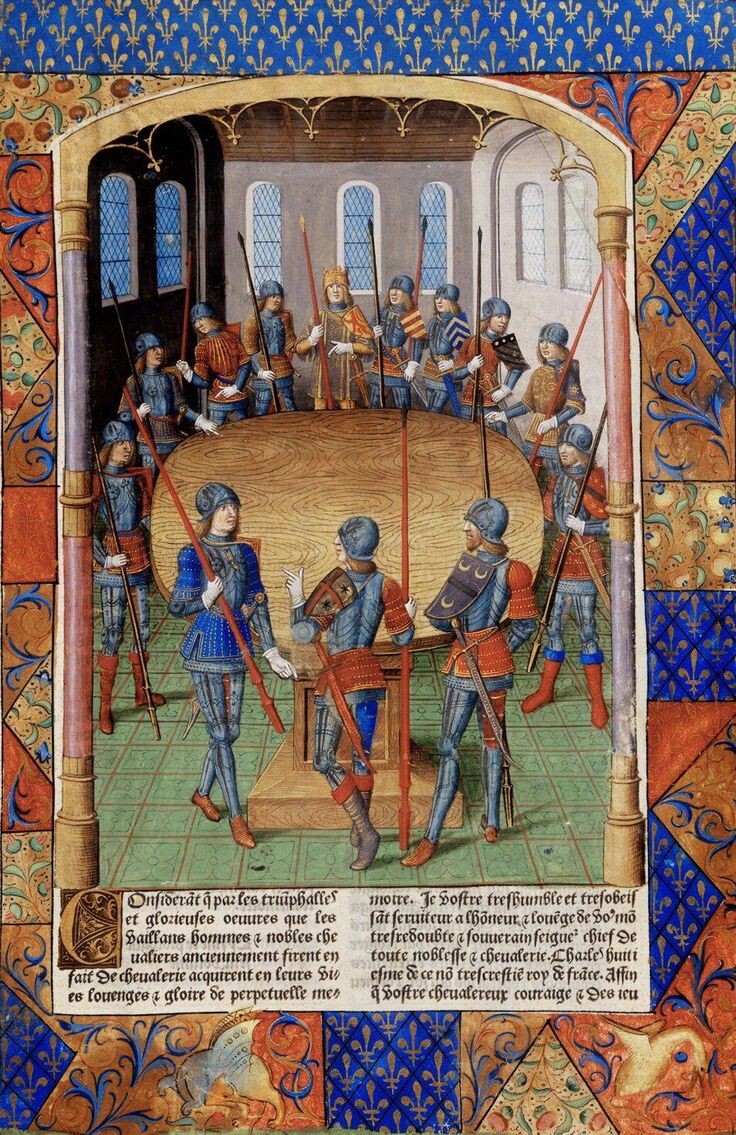 Onsiderāt q̄ par les triūphalles
et glorieuses oeuures que les
vaillans hommes ⁊ nobles che
ualiers anciennement firent en
fait de cheualerie acquirent en leurs vi-
es louenges ⁊ gloire de perpetuelle me-
moire. Je vostre treshumble et tresobeis
sāt seruiteur a lhōneur ⁊ louēge de vo⁹ mō
tresredoubte ⁊ souuerain seigneᷣ chief de
toute noblesse ⁊ cheualerie. Charles huiti
esme de ce nō trescrestiē roy de frāce. Affin
q̄ vostre cheualereux couraige ⁊ des ieu